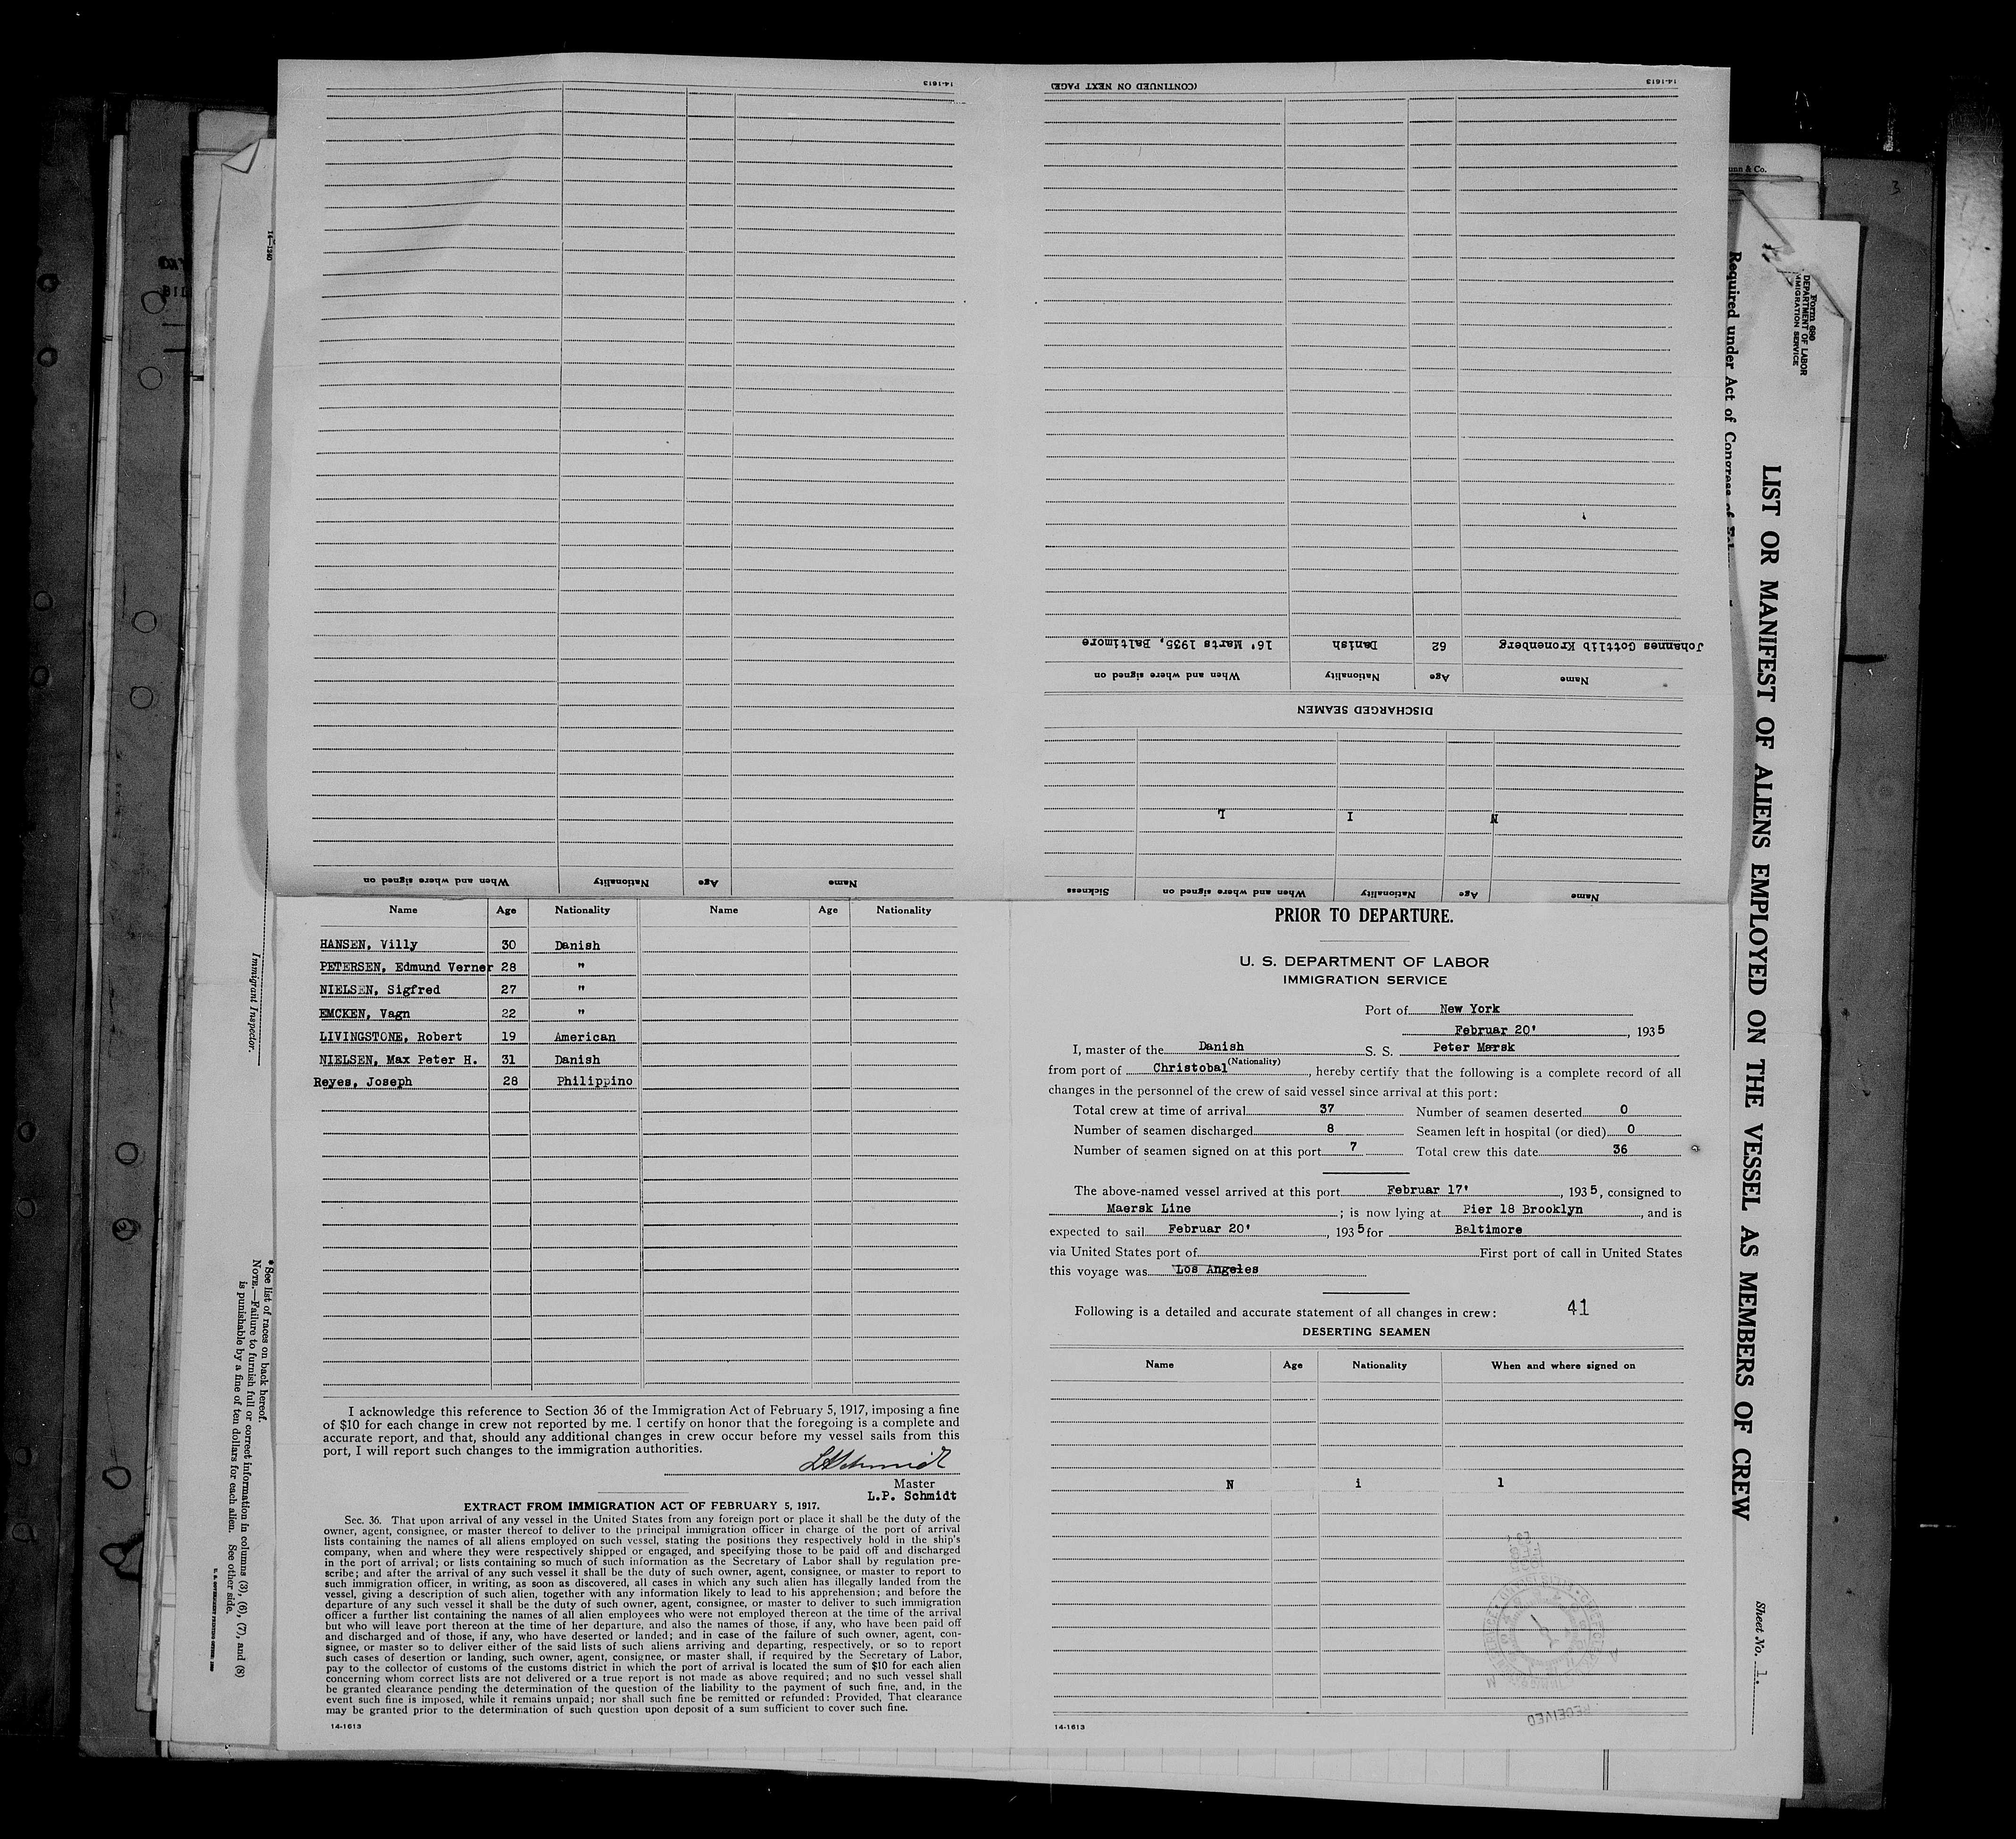 14-1613
(CONTINUED ON NEXT PAGE)
14-1613
Johannes Gottlib Kronenberg 62 Danish 16' Marts 1935, Baltimore
Name Age Nationality When and where signed on
DISCHARGED SEAMEN
N I L
Name Age Nationality When and where signed on Sickness
Name Age Nationality When and where signed on
Name Age Nationality Name Age Nationality
HANSEN, Villy 30 Danish
PETERSEN, Edmund Verner 28 "
NIELSEN, Sigfred 27 "
EMCKEN, Vagn 22 "
LIVINGSTONE, Robert 19 American
NIELSEN, Max Peter H. 31 Danish
Reyes, Joseph 28 Philippino
I acknowledge this reference to Section 36 of the Immigration Act of February 5, 1917, imposing a fine
of $10 for each change in crew not reported by me. I certify on honor that the foregoing is a complete and
accurate report, and that, should any additional changes in crew occur before my vessel sails from this
port, I will report such changes to the immigration authorities.
LPSchmidt
Master
L.P. Schmidt
EXTRACT FROM IMMIGRATION ACT OF FEBRUARY 5, 1917.
Sec. 36. That upon arrival of any vessel in the United States from any foreign port or place it shall be the duty of the
owner, agent, consignee, or master thereof to deliver to the principal immigration officer in charge of the port of arrival
lists containing the names of all aliens employed on such vessel, stating the positions they respectively hold in the ship's
company, when and where they were respectively shipped or engaged, and specifying those to be paid off and discharged
in the port of arrival; or lists containing so much of such information as the Secretary of Labor shall by regulation pre-
scribe; and after the arrival of any such vessel it shall be the duty of such owner, agent, consignee, or master to report to
such immigration officer, in writing, as soon as discovered, all cases in which any such alien has illegally landed from the
vessel, giving a description of such alien, together with any information likely to lead to his apprehension; and before the
departure of any such vessel it shall be the duty of such owner, agent, consignee, or master to deliver to such immigration
officer a further list containing the names of all alien employees who were not employed thereon at the time of the arrival
but who will leave port thereon at the time of her departure, and also the names of those, if any, who have been paid off
and discharged and of those, if any, who have deserted or landed; and in case of the failure of such owner, agent, con-
signee, or master so to deliver either of the said lists of such aliens arriving and departing, respectively, or so to report
such cases of desertion or landing, such owner, agent, consignee, or master shall, if required by the Secretary of Labor,
pay to the collector of customs of the customs district in which the port of arrival is located the sum of $10 for each alien
concerning whom correct lists are not delivered or a true report is not made as above required; and no such vessel shall
be granted clearance pending the determination of the question of the liability to the payment of such fine, and, in the
event such fine is imposed, while it remains unpaid; nor shall such fine be remitted or refunded: Provided, That clearance
may be granted prior to the determination of such question upon deposit of a sum sufficient to cover such fine.
14-1613
PRIOR TO DEPARTURE.
U. S. DEPARTMENT OF LABOR
IMMIGRATION SERVICE
Port of New York
Februar 20' , 1935
I, master of the Danish S. S. Peter Mærsk
(Nationality)
from port of Christobal , hereby certify that the following is a complete record of all
changes in the personnel of the crew of said vessel since arrival at this port:
Total crew at time of arrival 37 Number of seamen deserted 0
Number of seamen discharged 8 Seamen left in hospital (or died) 0
Number of seamen signed on at this port 7 Total crew this date 36
The above-named vessel arrived at this port Februar 17' , 1935, consigned to
Maersk Line ; is now lying at Pier 18 Brooklyn , and is
expected to sail Februar 20' , 1935 for Baltimore
via United States port of First port of call in United States
this voyage was Los Angeles
Following is a detailed and accurate statement of all changes in crew: 41
DESERTING SEAMEN
Name Age Nationality When and where signed on
N i l
RECEIVED
14-1613
Form 680
DEPARTMENT OF LABOR
IMMIGRATION SERVICE
LIST OR MANIFEST OF ALIENS EMPLOYED ON THE VESSEL AS MEMBERS OF CREW
Required under Act of Congress of
Sheet No. 1.
14-1240
Immigrant Inspector.
* See list of races on back hereof.
NOTE.—Failure to furnish full or correct information in columns (3), (6), (7), and (8)
is punishable by a fine of ten dollars for each alien. See other side.
U. S. GOVERNMENT PRINTING OFFICE
& Co.
3